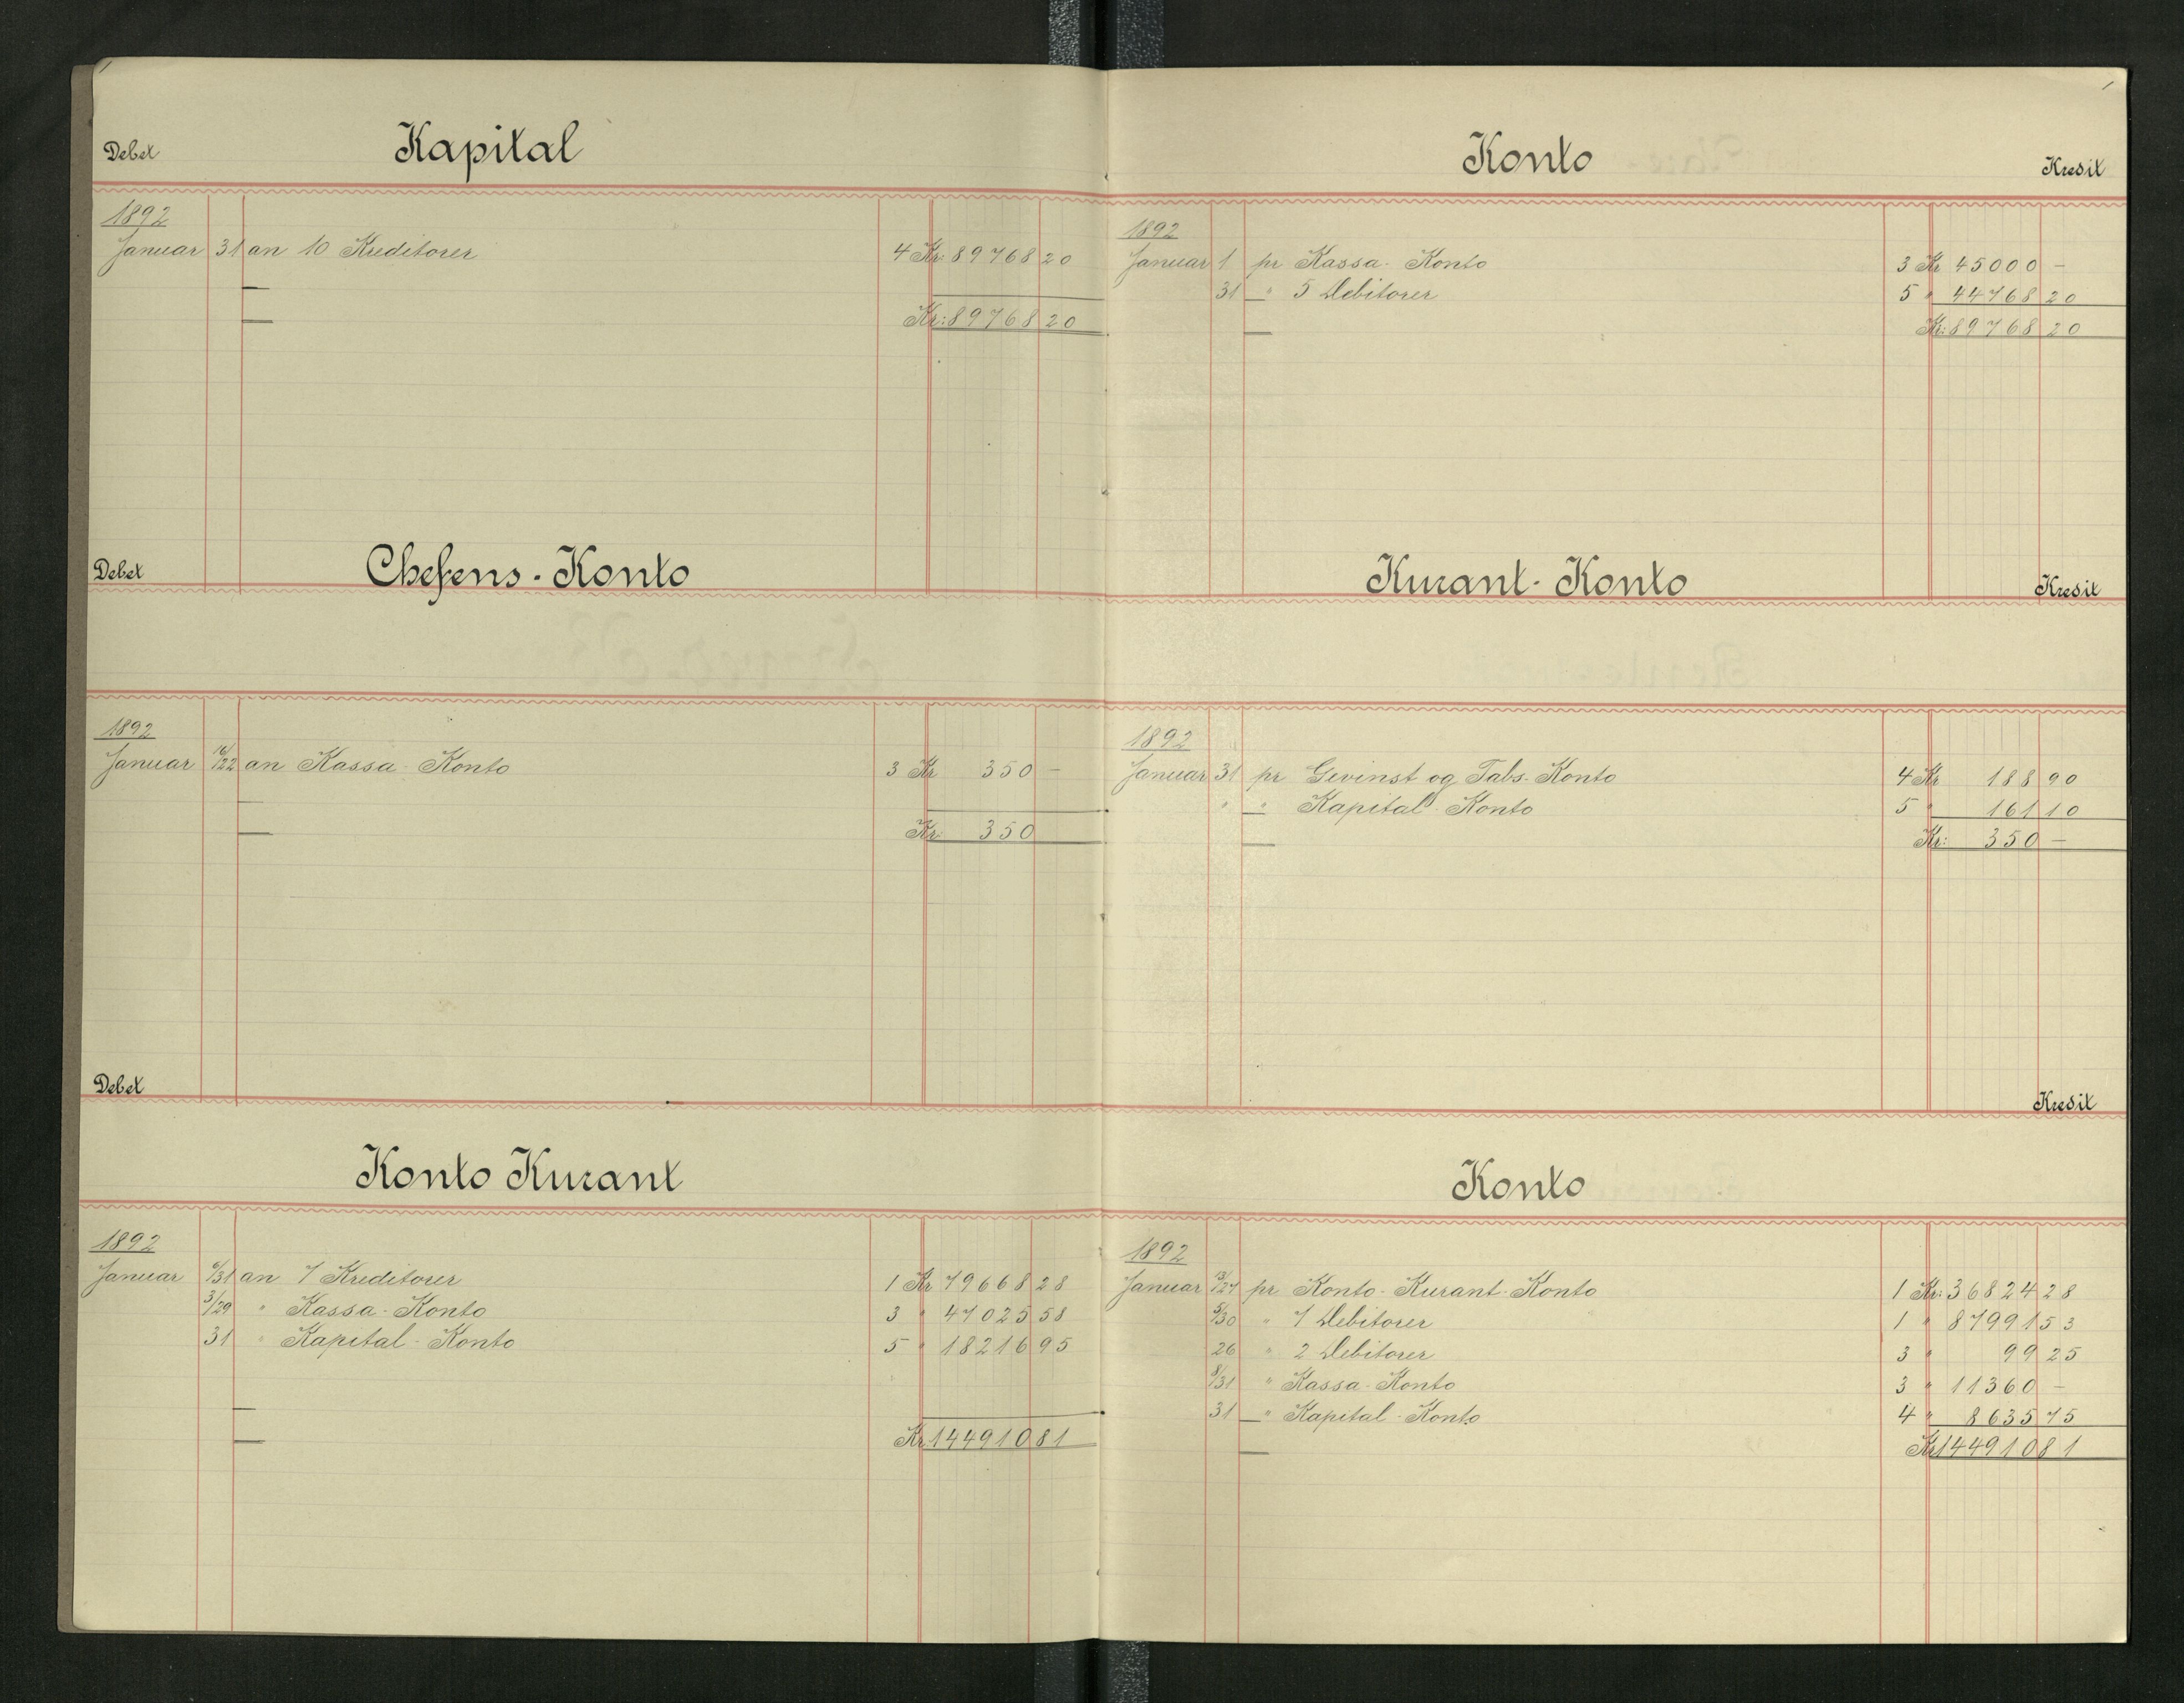 Debet Kapital Konto Kredit
1892
Januar 31 an 10 Kreditorer 4 Kr: 89768 20
Kr: 89768 20
1892
Januar 1 pr Kassa-Konto 3 Kr 45000 —
31 " 5 Debitorer 5 " 44768 20
Kr: 89768 20
Debet Chefens-Konto Kurant-Konto Kredit
1892
Januar 16/22 an Kassa-Konto 3 Kr 350 —
Kr: 350
1892
Januar 31 pr Gevinst og Tabs-Konto 4 Kr 188 90
" " Kapital-Konto 5 " 161 10
Kr: 350 —
Debet Kredit
Konto Kurant Konto
1892
Januar 6/31 an 7 Kreditorer 1 Kr 79668 28
3/29 " Kassa-Konto 3 " 47025 58
31 " Kapital-Konto 5 " 18216 95
Kr 144910 81
1892
Januar 13/27 pr Konto-Kurant-Konto 1 Kr: 36824 28
5/30 " 7 Debitorer 1 " 87991 53
26 " 2 Debitorer 3 " 99 25
8/31 " Kassa-Konto 3 " 11360 —
31 " Kapital-Konto 4 " 8635 75
Kr 144910 81